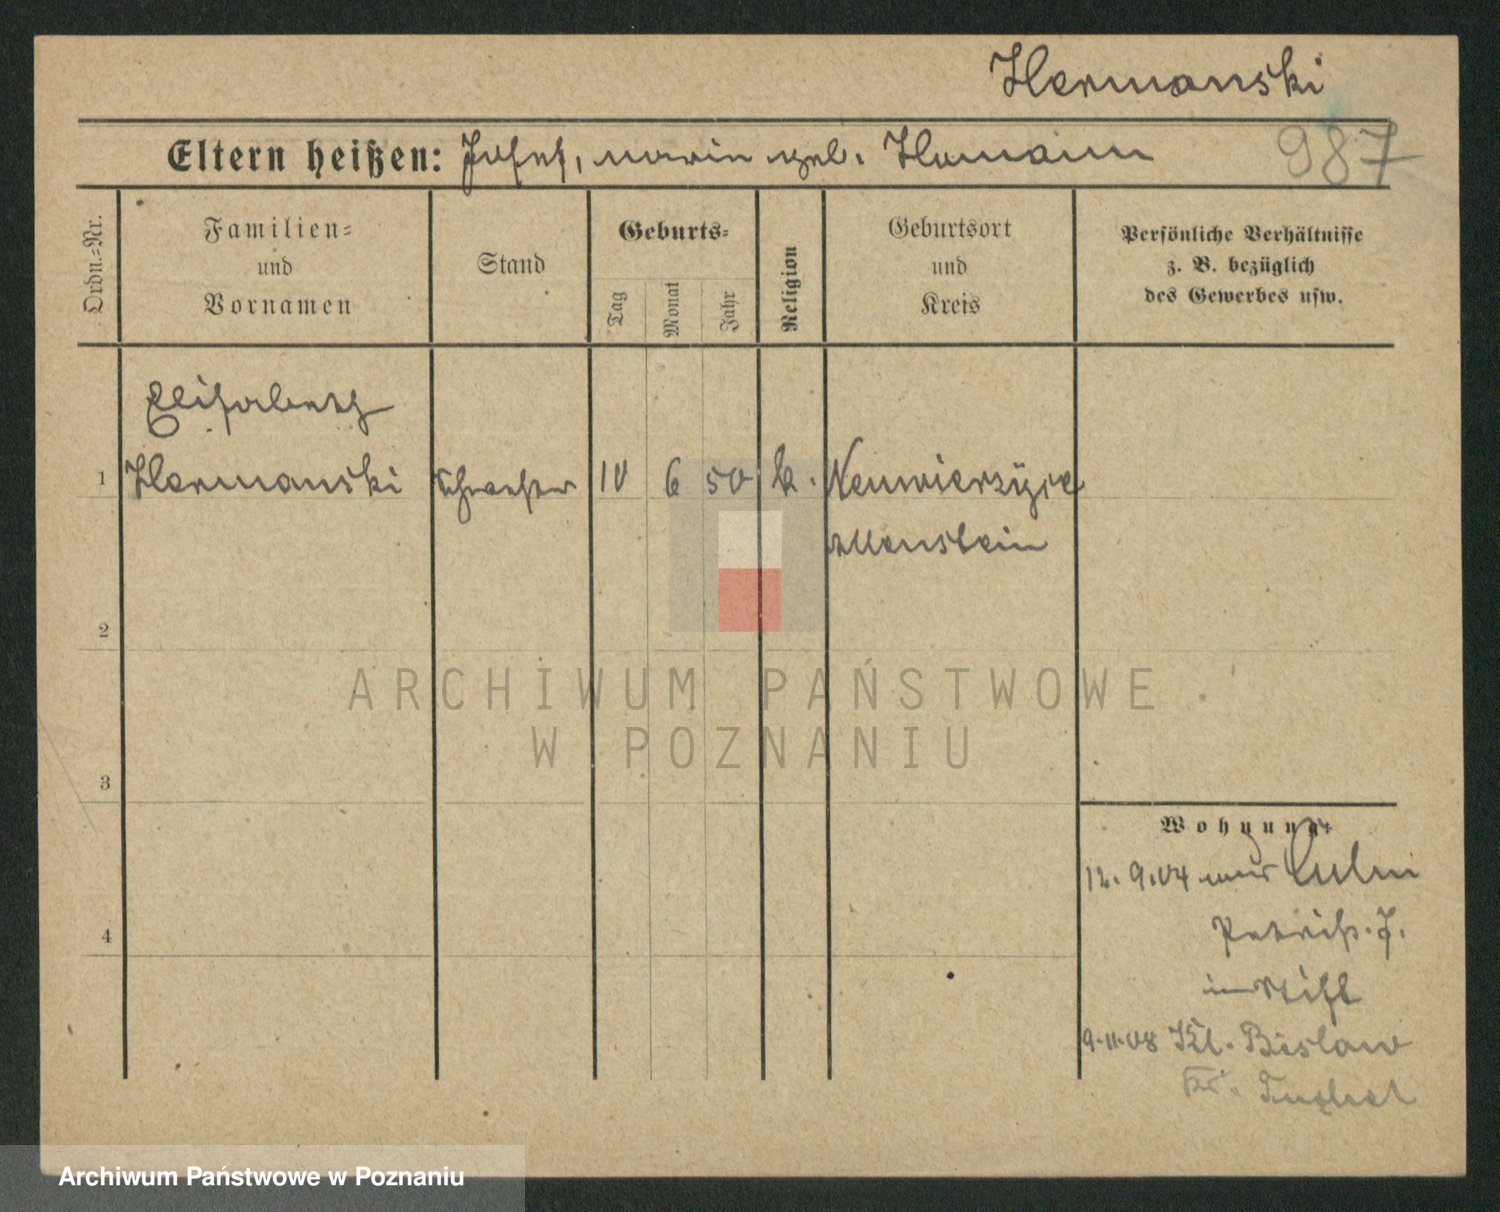 Hermanski
Eltern heißen: Josef, Maria geb. Hermann
987
Ordn.-Nr.
Familien-
und
Vornamen
Stand
Geburts-
Tag
Monat
Jahr
Religion
Geburtsort
und
Kreis
Persönliche Verhältnisse
z. B. bezüglich
des Gewerbes usw.
Elisabeth
1 Hermanski Schwester 10 6 50 k.
Allenstein
2
ARCHIWUM PAŃSTWOWE
W POZNANIU
3
Wohnung:
12.9.04 Culm
4
9.11.08 Kl. Bislaw
Kr. Tuchel
Archiwum Państwowe w Poznaniu